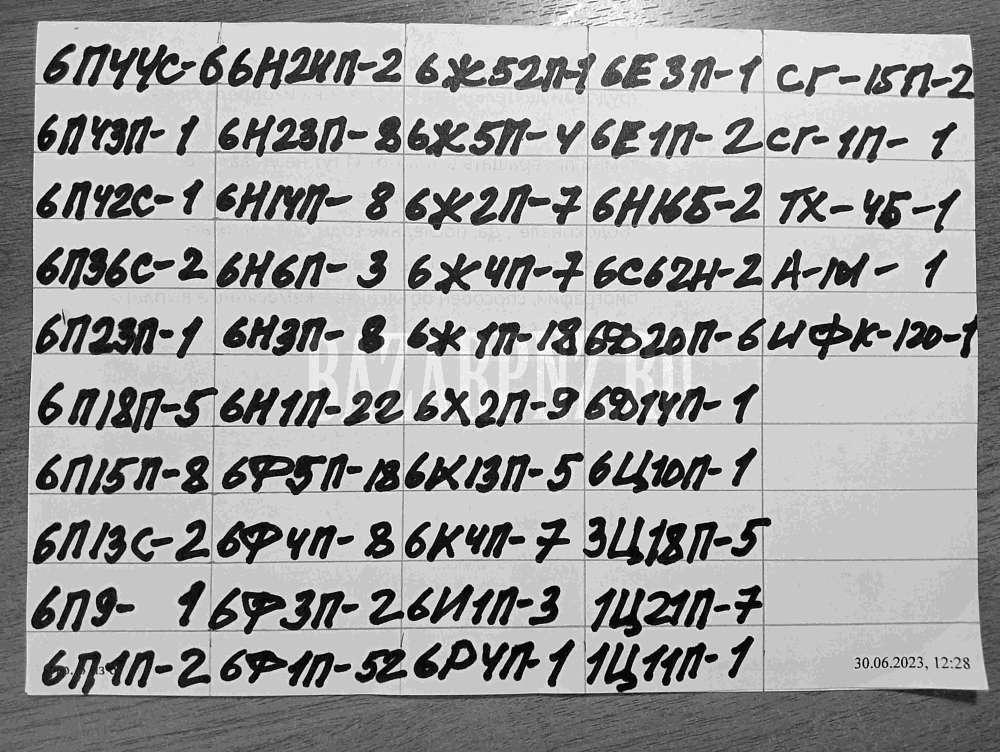 6П44С-6 6Н24П-2 6Ж52П-1 6Е3П-1 СГ-15П-2
6П43П-1 6Н23П-8 6Ж5П-4 6Е1П-2 СГ-1П-1
6П42С-1 6Н14П-8 6Ж2П-7 6Н16Б-2 ТХ-4Б-1
6П36С-2 6Н6П-3 6Ж4П-7 6С62Н-2 1
6П23П-1 6Н3П-8 6Ж1П-18 6Ф20П-6 ИФК-120-1
6П18П-5 6Н1П-22 6Х2П-9 6Д14П-1
6П15П-8 6Ф5П-18 6К13П-5 6Ц10П-1
6П13С-2 6Ф4П-8 6К4П-7 3Ц18П-5
6П9-1 6Ф3П-2 6И1П-3 1Ц21П-7
6П1П-2 6Ф1П-52 6Р4П-1 1Ц11П-1
30.06.2023, 12:28
BAZARPNZ.RU